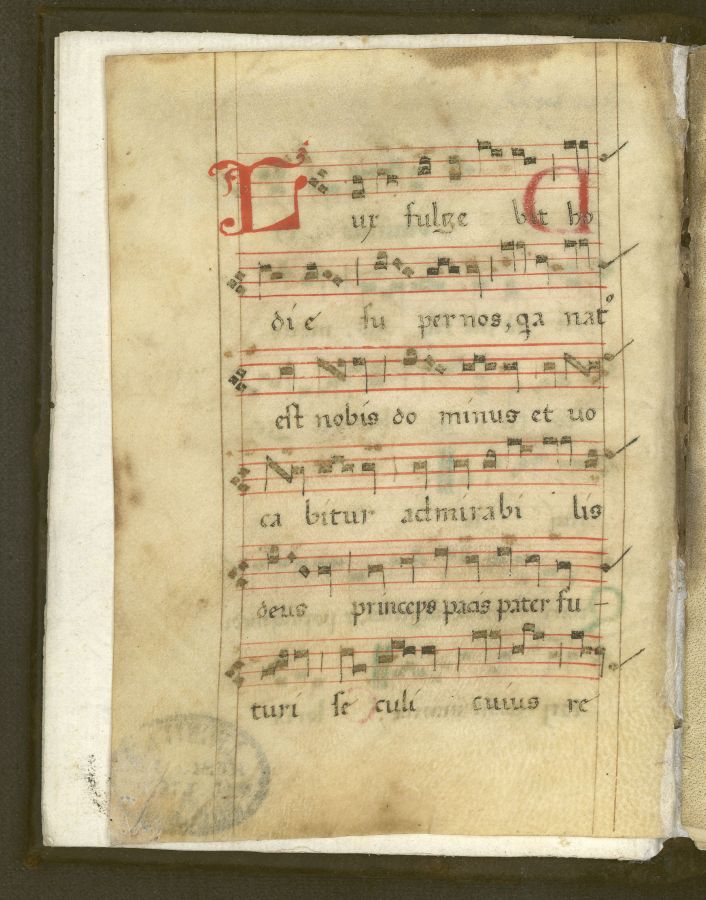 Lux fulge bit ho
di e su pernos, q̃a nat⁹
est nobis do minus et uo
ca bitur admirabi lis
deus princeps pacis pater fu -
turi se culi cuius re